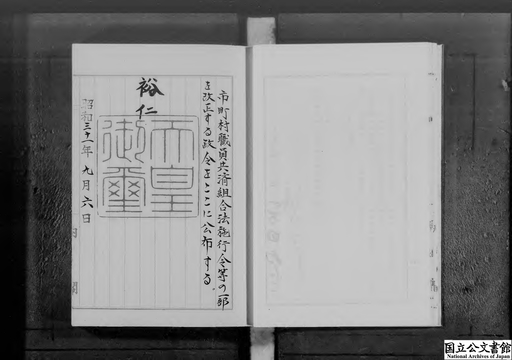 市町村職員共済組合法施行令等の一部
を改正する政令をここに公布する。
裕仁
天皇
御璽
昭和三十一年九月六日
内閣
国立公文書館
National Archives of Japan